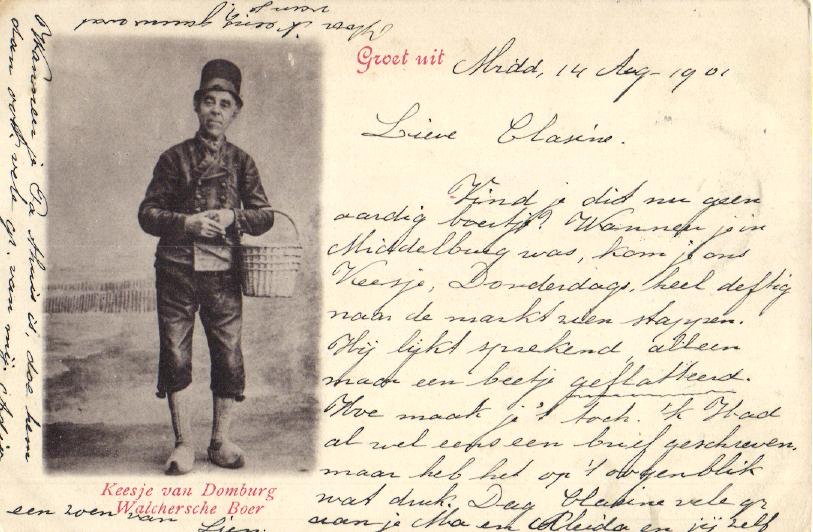 Groet uit Midd, 14 Aug - 1901
Lieve Clasine.
Vind je dit nu geen
aardig boertje? Wanneer je in
Middelburg was, kom je ons
Keesje, Donderdags, heel deftig
naar de markt zien stappen.
Hij lijkt sprekend, alleen
maar een beetje geflatteerd.
Hoe maak je 't toch. 'k Had
al wel eens een brief geschreven.
maar heb het op 't oogenblik
wat druk. Dag Clasine vele gr
aan je Ma en en jij zelf
een zoen van
Wanneer je Pa thuis is, doe hem
dan ook vele gr. van mij.
Keesje van Domburg
Walchersche Boer